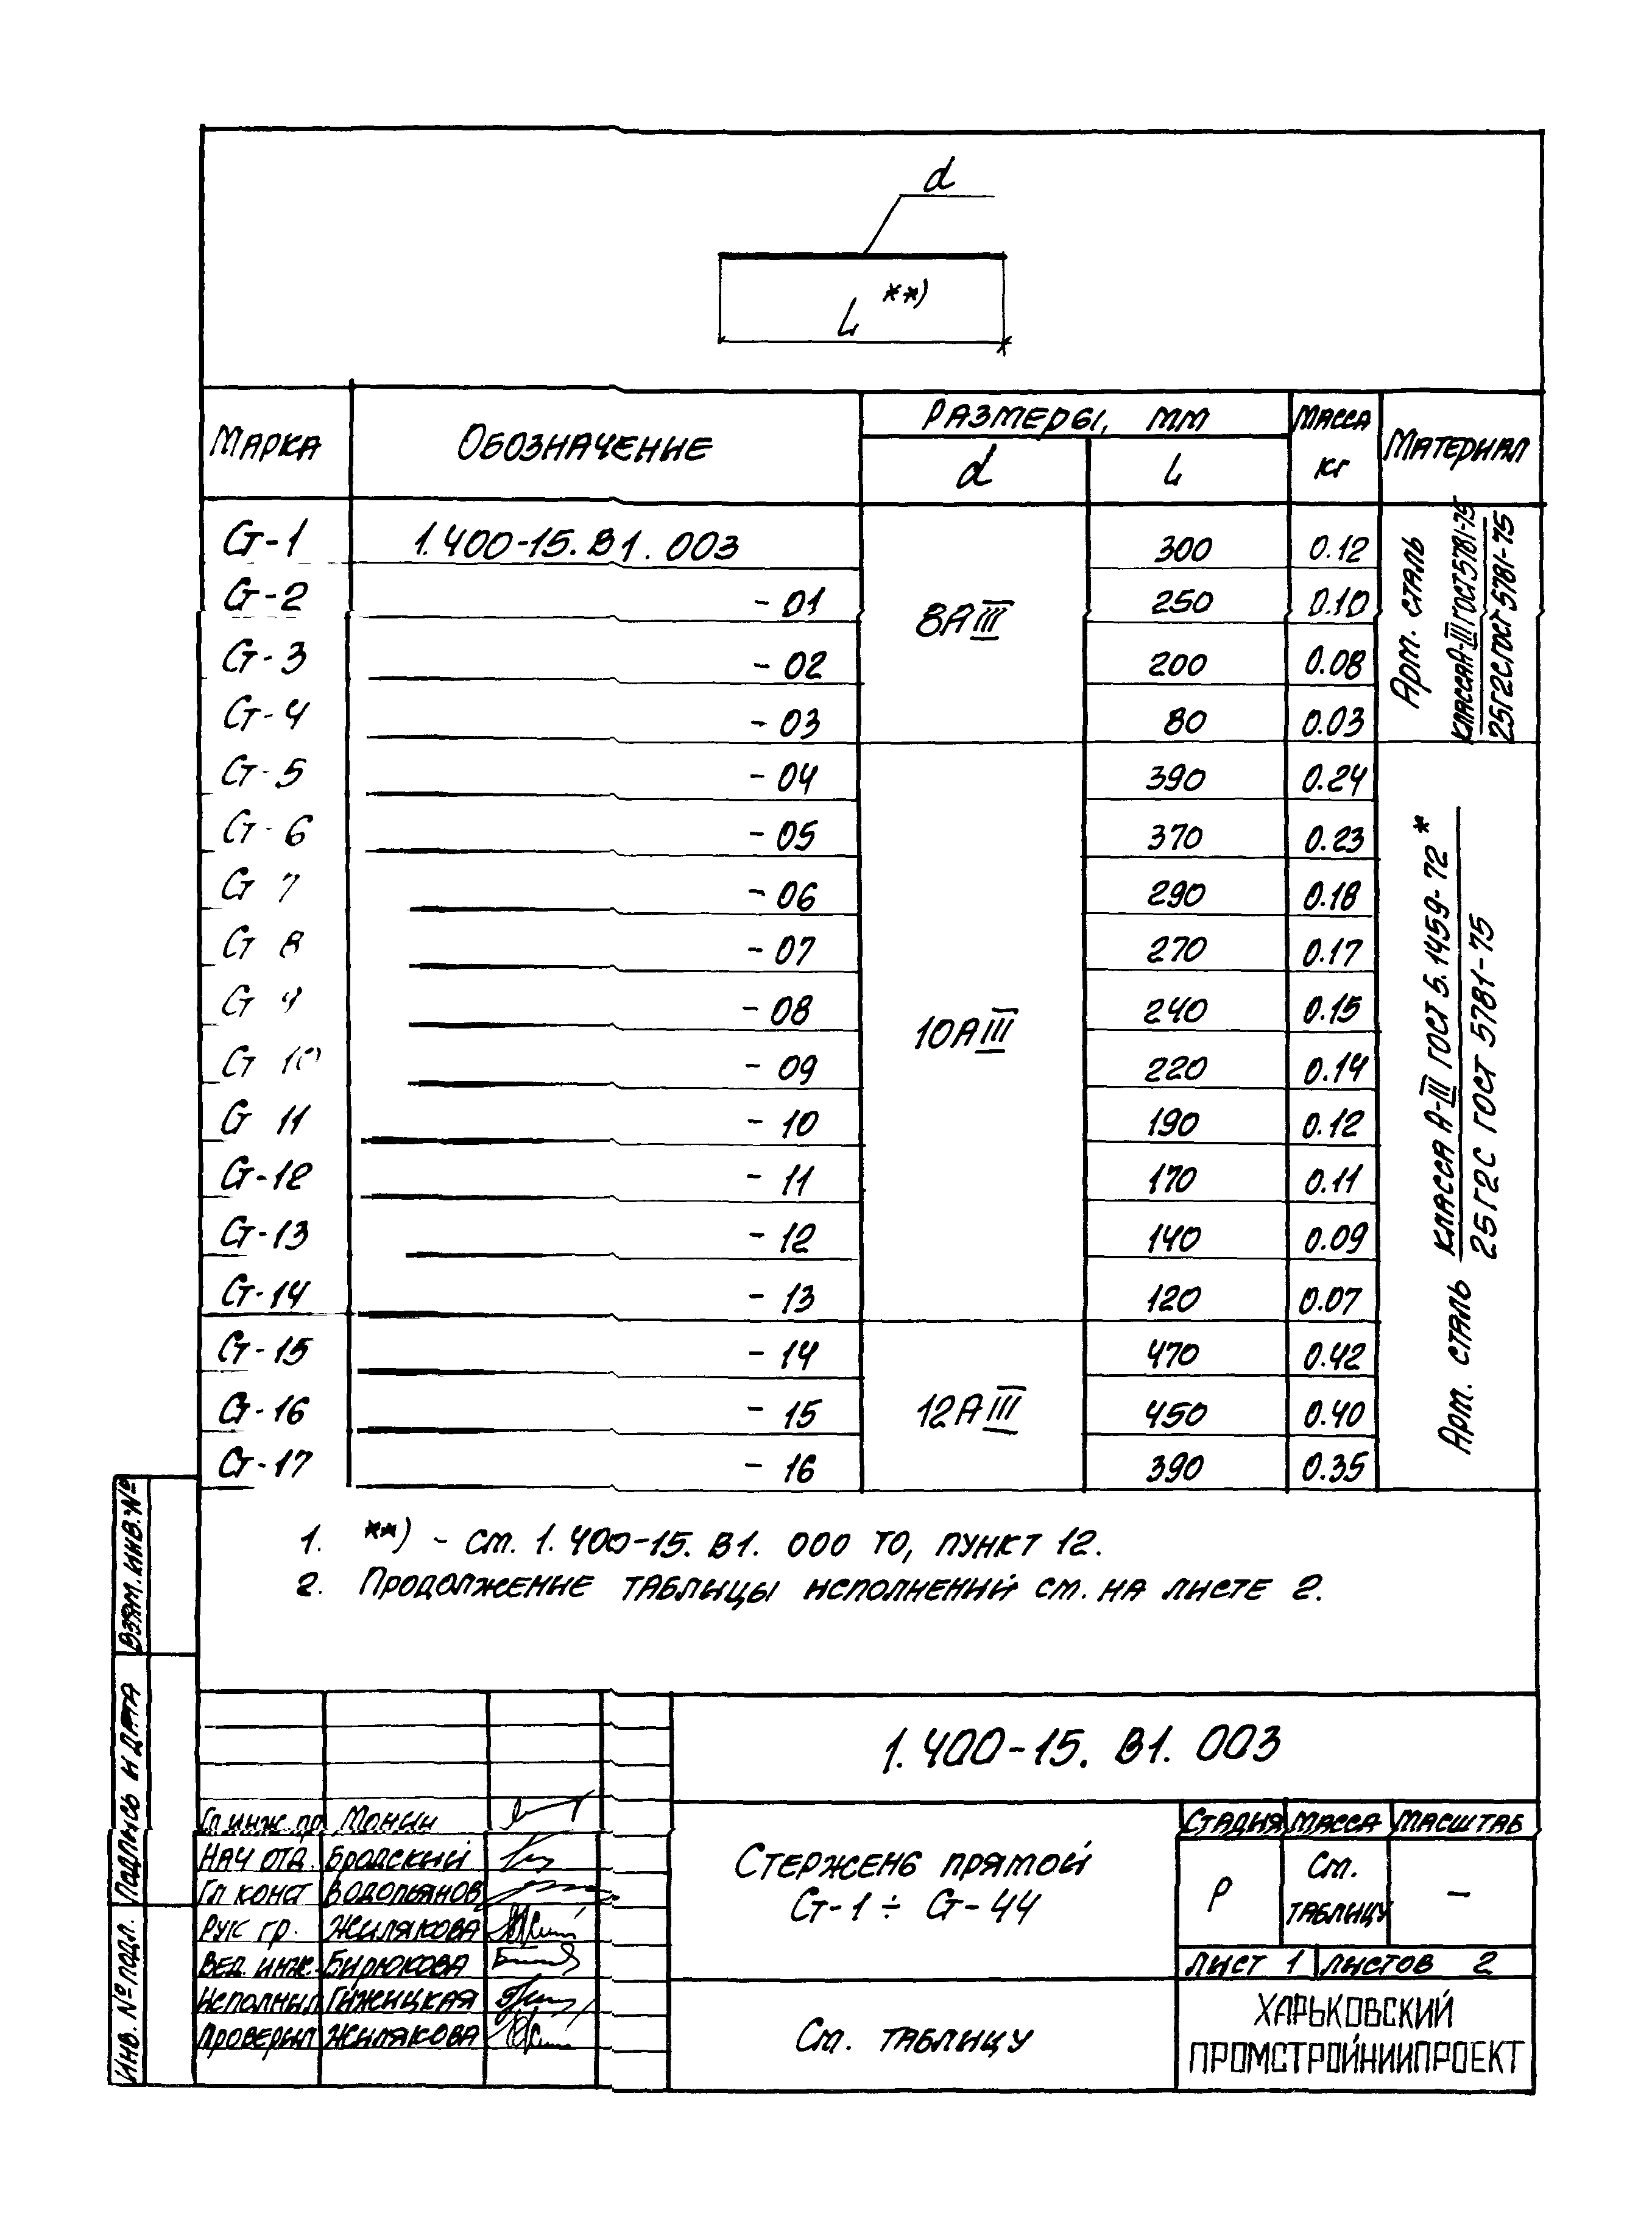 d
L **)
Марка Обозначение Размеры, мм Масса кг Материал
d L
Ст-1 1.400-15.В1.003 8АIII 300 0.12
Ст-2 -01 250 0.10
Ст-3 -02 200 0.08
Ст-4 -03 80 0.03
Арм. сталь класса А-III ГОСТ 5781-75
25Г2С ГОСТ 5781-75
Ст-5 -04 10АIII 390 0.24
Ст-6 -05 370 0.23
Ст 7 -06 290 0.18
Ст 8 -07 270 0.17
Ст 9 -08 240 0.15
Ст 10 -09 220 0.14
Ст 11 -10 190 0.12
Ст-12 -11 170 0.11
Ст-13 -12 140 0.09
Ст-14 -13 120 0.07
Ст-15 -14 12АIII 470 0.42
Ст-16 -15 450 0.40
Ст-17 -16 390 0.35
Арм. сталь класса А-III ГОСТ 5.1459-72*
25Г2С ГОСТ 5781-75
1. **) - см. 1.400-15.В1.000 ТО, пункт 12.
2. Продолжение таблицы исполнений см. на листе 2.
Взам. инв. №
Подпись и дата
Инв. № подл.
1.400-15.В1.003
Гл инж. пр. Монин
Нач отд. Бродский
Гл конст Водопьянов
Рук гр. Жилякова
Вед. инж. Бирюкова
Исполнил Гижицкая
Проверил Жилякова
Стержень прямой
Ст-1 ÷ Ст-44
См. таблицу
Стадия Масса Масштаб
Р См. таблицу —
Лист 1 Листов 2
ХАРЬКОВСКИЙ
ПРОМСТРОЙНИИПРОЕКТ